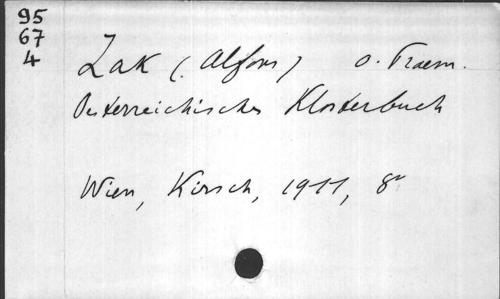 95
67
4
Zak (. Alfons) o. Praem.
Oesterreichisches Klosterbuch
Wien, Kirsch, 1911, 8°